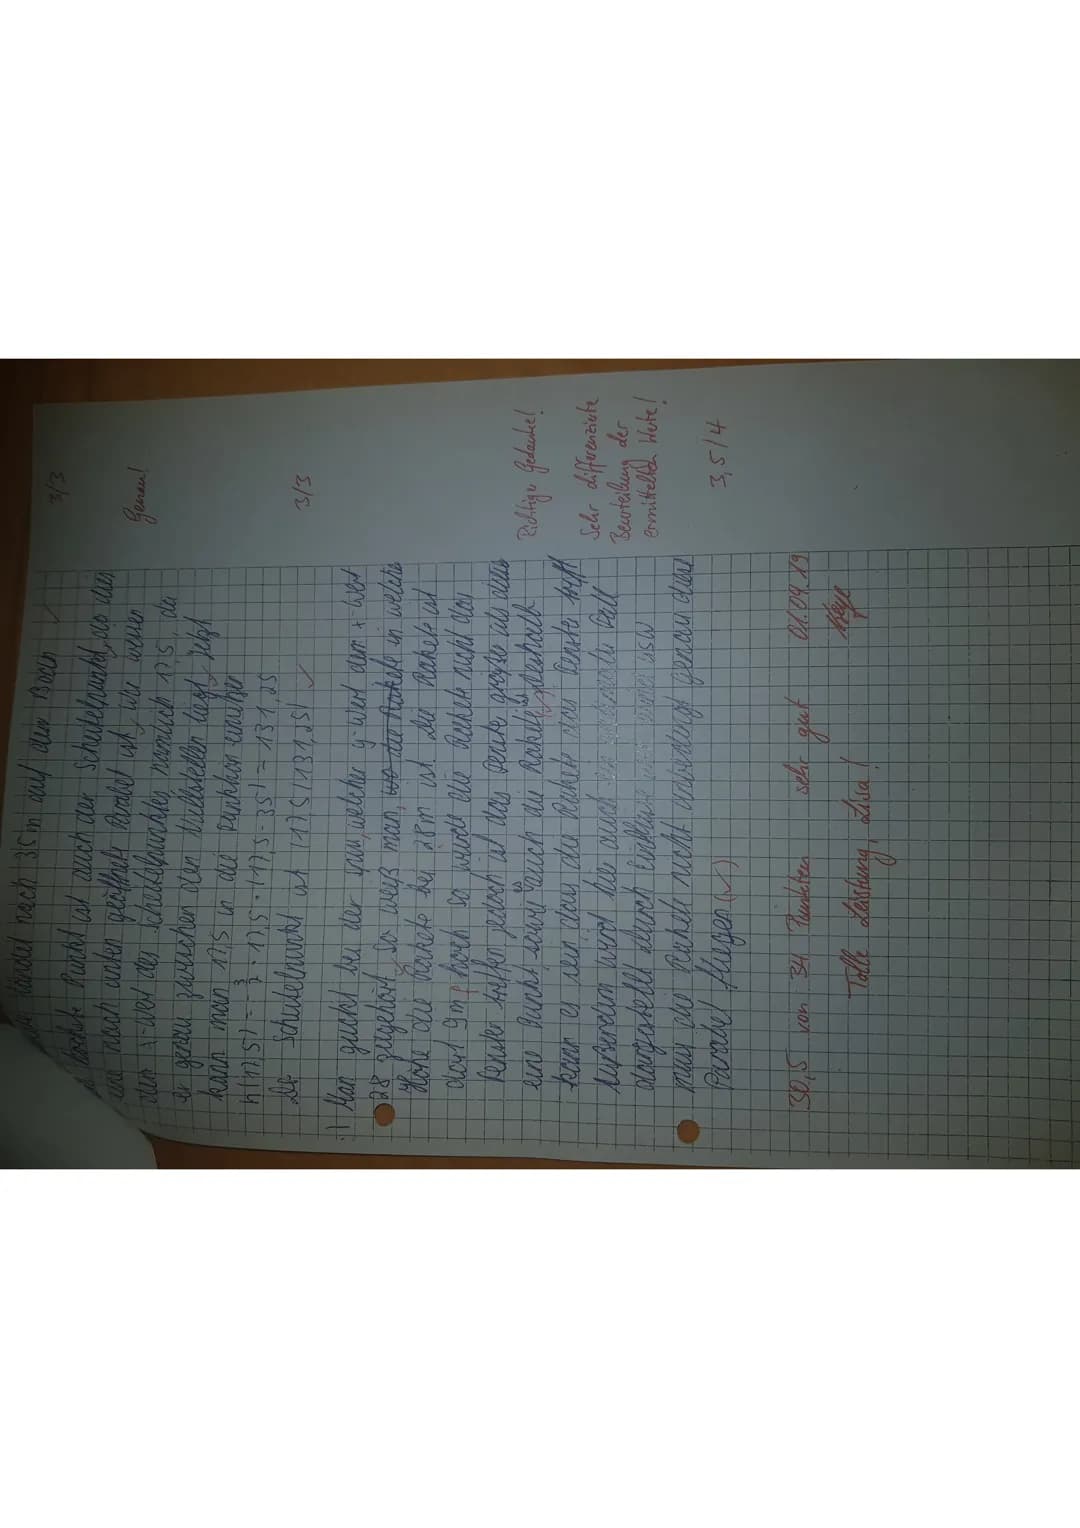 landet nach 35m auf dem Boden ✓ 3/3
höchste Punkt ist auch der Scheitelpunkt, da dies
eine nach unten geöffnete Parabel ist, wir wissen Genau!
den x-Wert des Scheitelpunktes nämlich 17,5, da
er genau zwischen den Nullstellen liegt. Jetzt
kann man 17,5 in die Funktion einsetzen
h(17,5) = -3/7 · 17,5 · (17,5-35) = 131,25
Der Scheitelpunkt ist (17,5|131,25) ✓ 3/3
.) Man guckt bei der welcher y-Wert dem x-Wert
28 zugehört. So weiß man, wo die Rakete in welcher
Höhe die Rakete bei 28m ist. Die Rakete ist
dort 9m hoch so würde die Rakete nicht das
Fenster treffen jedoch ist das Fenster größer als
eine Punkt sowie auch die Rakete, deshalb Richtiger Gedanke!
kann es sein dass die Rakete das Fenster trifft Sehr differenzierte
Außerdem wird hie auch ein Fall Beurteilung der
dargestellt durch Einflüsse wie Wind usw ermittelten Werte!
muss die Rakete nicht unbedingt genau diese
Parabel fliegen (✓) 3,5/4
30,5 von 34 Punkten sehr gut 01.04.19
Tolle Leistung, Lisa!